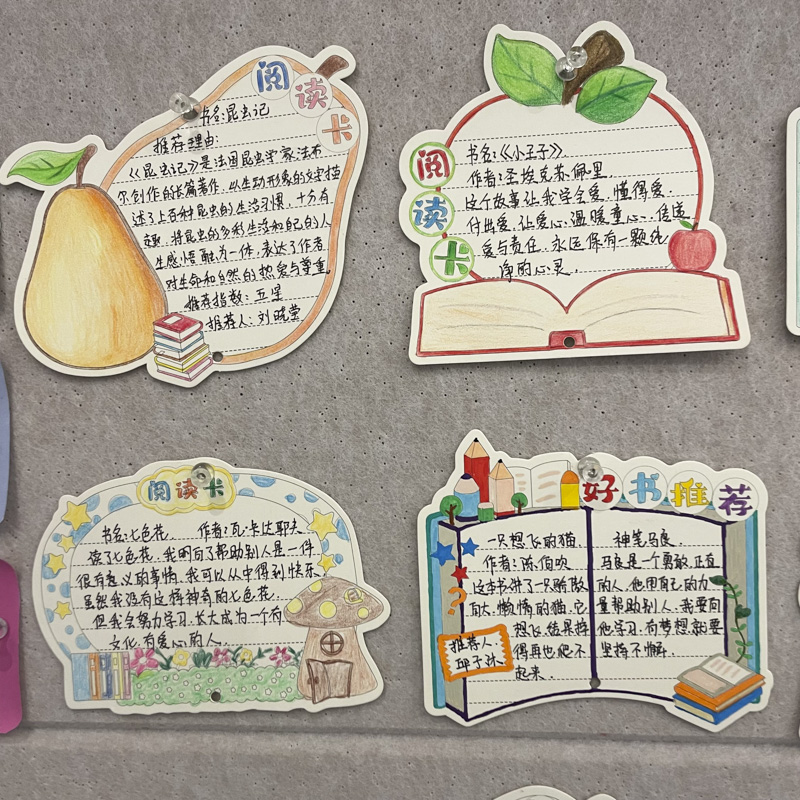 阅读卡
书名:昆虫记
推荐理由:
《昆虫记》是法国昆虫学家法布
尔创作的长篇著作,以生动形象的文字描
述了上百种昆虫的生活习惯,十分有
趣,将昆虫的多彩生活和自己的人
生感悟融为一体,表达了作者
对生命和自然的热爱与尊重。
推荐指数:五星
推荐人:刘晓莹
阅读卡
书名:《小王子》
作者:圣埃克苏佩里
这个故事让我学会爱,懂得爱,
付出爱,让爱心、温暖童心,传递
爱与责任,永远保有一颗纯
净的心灵。
阅读卡
书名:七色花, 作者:瓦·卡达耶夫
读了七色花,我明白了帮助别人是一件
很有意义的事情,我可以从中得到快乐,
虽然我没有这样神奇的七色花,
但我会努力学习,长大成为一个有
文化有爱心的人.
好书推荐
一只想飞的猫
作者:陈伯吹
这本书讲了一只骄傲
自大,懒惰的猫,它
想飞,结果摔
得再也爬不
起来.
推荐人:
邱子沐
神笔马良.
马良是一个勇敢,正直
的人,他用自己的力
量帮助别人,我要向
他学习,有梦想就要
坚持不懈.